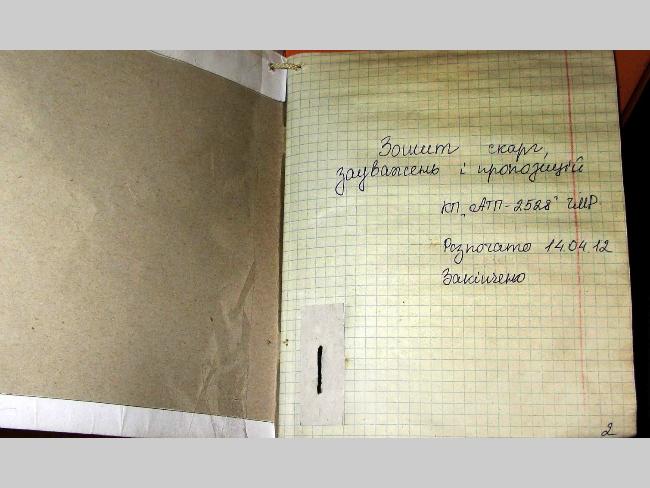 Зошит скарг,
зауважень і пропозицій
КП „АТП-2528" ЧМР.
Розпочато 14.04.12
Закінчено
2